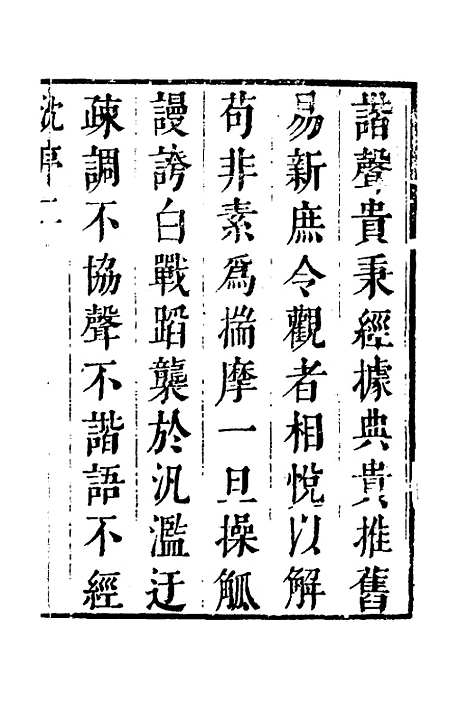 諧聲貴秉經據典貴推舊
易新庶令觀者相悅以解
苟非素爲揣摩一旦操觚
謾誇白戰蹈襲於汎濫迂
疎調不協聲不諧語不經
沈序二